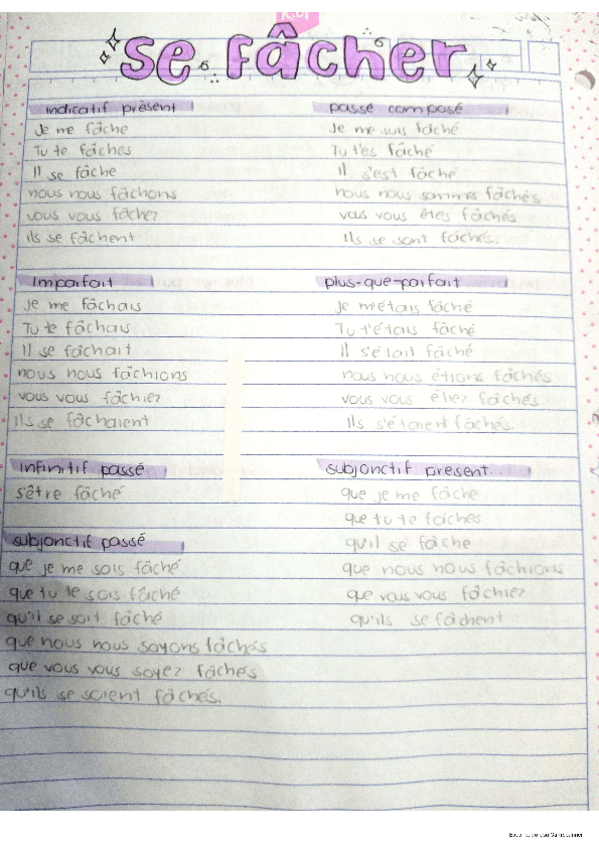 se fâcher
indicatif présent
Je me fâche
Tu te fâches
Il se fâche
nous nous fâchons
vous vous fâchez
ils se fâchent
passé composé
Je me suis fâché
Tu t'es fâché
Il s'est fâché
nous nous sommes fâchés
vous vous êtes fâchés
Ils se sont fâchés.
Imparfait
Je me fâchais
Tu te fâchais
Il se fâchait
nous nous fâchions
vous vous fâchiez
Ils se fâchaient
plus-que-parfait
Je m'étais fâché
Tu t'étais fâché
Il s'était fâché
nous nous étions fâchés
vous vous étiez fâchés
Ils s'étaient fâchés.
infinitif passé
s'être fâché
subjonctif présent
que je me fâche
que tu te fâches
qu'il se fâche
que nous nous fâchions
que vous vous fâchiez
qu'ils se fâchent
subjonctif passé
que je me sois fâché
que tu te sois fâché
qu'il se soit fâché
que nous nous soyons fâchés
que vous vous soyez fâchés
qu'ils se soient fâchés.